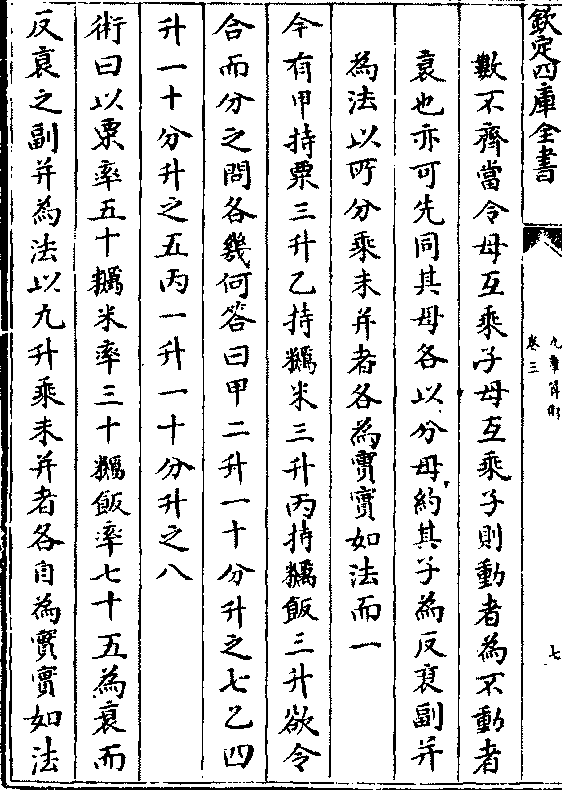 欽定四庫全書
九章算術
卷三
七
數不齊當令母互乘子母互乘子則動者為不動者
衰也亦可先同其母各以分母約其子為反衰副并
為法以所分乘未并者各為實實如法而一
今有甲持粟三升乙持糲米三升丙持糲飯三升欲令
合而分之問各幾何答曰甲二升一十分升之七乙四
升一十分升之五丙一升一十分升之八
術曰以粟率五十糲米率三十糲飯率七十五為衰而
反衰之副并為法以九升乘未并者各自為實實如法